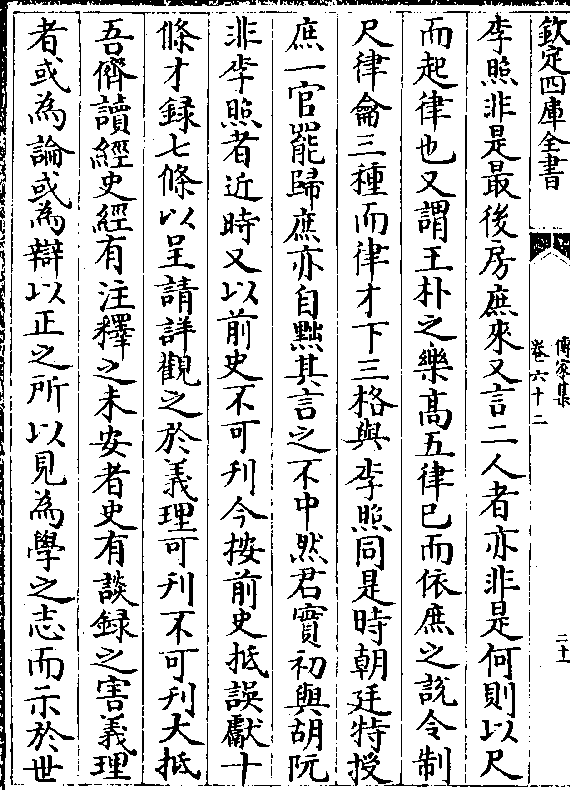 欽定四庫全書
傳家集
卷六十二
二十
李照非是最後房庶來又言二人者亦非是何則以尺
而起律也又謂王朴之樂高五律已而依庶之說令制
尺律龠三種而律才下三格與李照同是時朝廷特授
庶一官罷歸庶亦自黙其言之不中然君實初與胡阮
非李照者近時又以前史不可刋今按前史抵誤獻十
條才録七條以呈請詳觀之於義理可刋不可刋大抵
吾儕讀經史經有注釋之未安者史有談録之害義理
者或為論或為辯以正之所以見為學之志而示於世